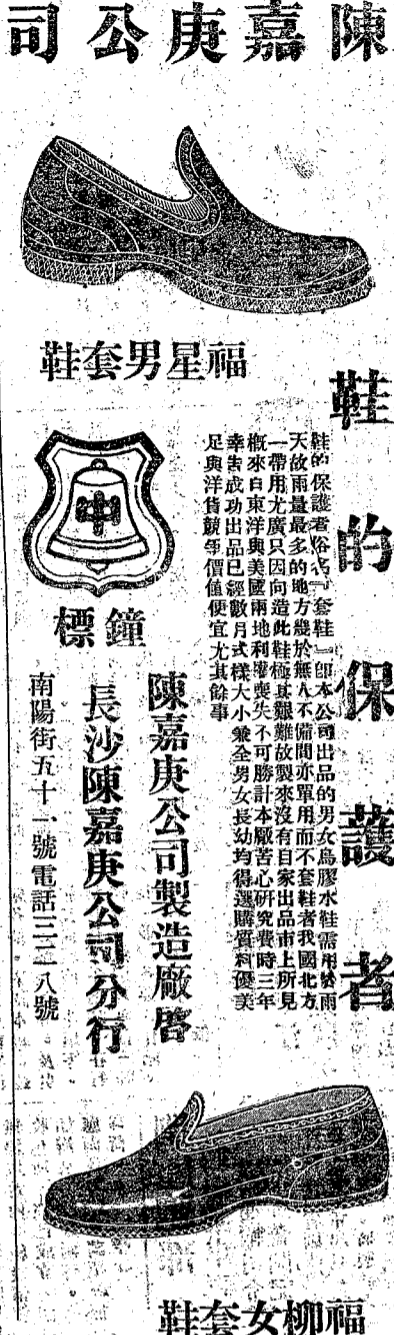 陳嘉庚公司
福星男套鞋
鞋的保護者
鞋的保護者俗名『套鞋』卽本公司出品的男女烏膠水鞋需用於雨
天故雨量最多的地方幾於無人不備間亦單用而不套鞋者我國北方
一帶用尤廣只因向造此鞋極其艱難故製來沒有自家出品市上所見
槪來自東洋與美國兩地利權喪失不可勝計本廠苦心硏究費時三年
幸吿成功出品已經數月式樣大小兼全男女長幼均得選購質料優美
足與洋貨競爭價值便宜尤其餘事
中
鐘標
陳嘉庚公司製造廠啓
長沙陳嘉庚公司分行
南陽街五十一號電話三二八號
福柳女套鞋